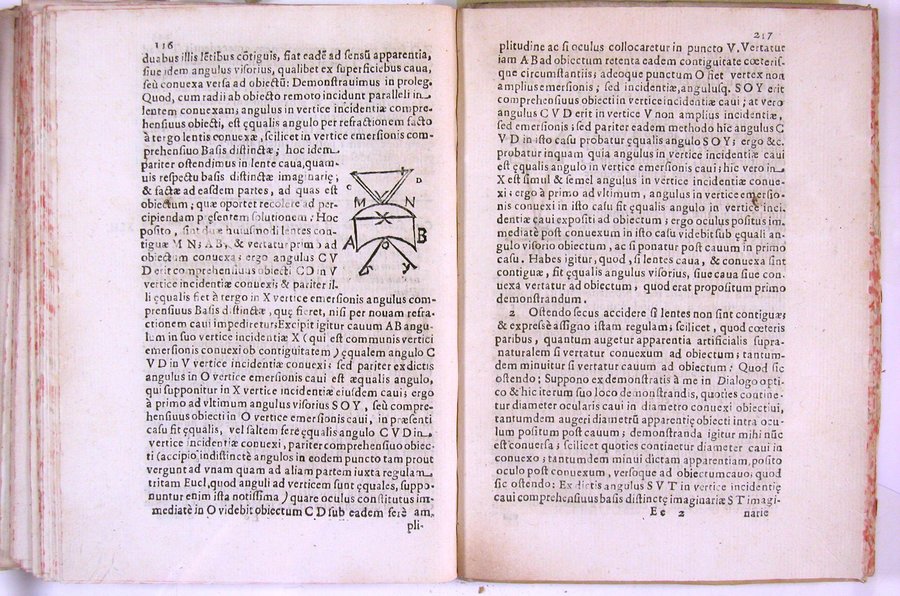 116
duabus illis lẽtibus cõtiguis, fiat eadẽ ad sensũ apparentia,
siue idem angulus visorius, qualibet ex superficiebus caua,
seù conuexa versa ad obiectũ: Demonstrauimus in proleg.
Quod, cum radii ab obiecto remoto incidunt paralleli in
lentem conuexam; angulus in vertice incidentiæ compre-
hensiuus obiecti, est ęqualis angulo per refractionem facto
à tergo lentis conuexæ, scilicet in vertice emersionis com-
prehensiuo Basis distinctæ; hoc idem
pariter ostendimus in lente caua, quam-
uis respectu basis distinctæ imaginarię;
& factæ ad easdem partes, ad quas est
obiectum; quæ oportet recolere ad per-
cipiendam præsentem solutionem: Hoc
posito, sint duæ huiusmodi lentes con-
tiguæ M N; A B, & vertatur primò ad
obiectum conuexa; ergo angulus C V
D erit comprehensiuus obiecti C D in V
vertice incidentiæ conuexi; & pariter il-
li ęqualis fiet à tergo in X vertice emersionis angulus com-
prehensiuus Basis distinctæ, quę fieret, nisi per nouam refra-
ctionem caui impediretur; Excipit igitur cauum AB angu-
lum in suo vertice incidentiæ X (qui est communis vertici
emersionis conuexi ob contiguitatem) ęqualem angulo C
V D in V vertice incidentiæ conuexi; sed pariter ex dictis
angulus in O vertice emersionis caui est æqualis angulo,
qui supponitur in X vertice incidentiæ eiusdem caui; ergo
à primo ad vltimum angulus visorius S O Y, seù compre-
hensiuus obiecti in O vertice emersionis caui, in præsenti
casu fit ęqualis, vel saltem ferè ęqualis angulo C V D in
vertice incidentiæ conuexi, pariter comprehensiuo obiec-
ti (accipio indistinctè angulos in eodem puncto tam prout
vergunt ad vnam quam ad aliam partem iuxta regulam
tritam Eucl, quod anguli ad verticem sunt ęquales, suppo-
nuntur enim ista notissima) quare oculus constitutus im-
mediatè in O videbit obiectum C D sub eadem ferè am-
pli-
C
D
M
N
V
X
A
B
O
S
Y
217
plitudine ac si oculus collocaretur in puncto V. Vertatur
iam A B ad obiectum retenta eadem contiguitate cœteris-
que circumstantiis; adeoque punctum O fiet vertex non
amplius emersionis; sed incidentiæ, angulusq. S O Y erit
comprehensiuus obiecti in vertice incidentiæ caui; at vero
angulus C V D erit in vertice V non amplius incidentiæ,
sed emersionis; sed pariter eadem methodo hic angulus C
V D in isto casu probatur ęqualis angulo S O Y; ergo &c.
probatur inquam quia angulus in vertice incidentiæ caui
est ęqualis angulo in vertice emersionis caui; hic vero in
X est simul & semel angulus in vertice incidentiæ conue-
xi: ergo à primo ad vltimum, angulus in vertice emersio-
nis conuexi in isto casu fit ęqualis angulo in vertice inci-
dentiæ caui expositi ad obiectum; ergo oculus positus im-
mediatè post conuexum in isto casu videbit sub ęquali an-
gulo visorio obiectum, ac si ponatur post cauum in primo
casu. Habes igitur, quod, si lentes caua, & conuexa sint
contiguæ, fit ęqualis angulus visorius, siue caua siue con-
uexa vertatur ad obiectum, quod erat propositum primo
demonstrandum.
2 Ostendo secus accidere si lentes non sint contiguæ;
& expressè assigno istam regulam; scilicet, quod cœteris
paribus, quantum augetur apparentia artificialis supra
naturalem si vertatur conuexum ad obiectum; tantum-
dem minuitur si vertatur cauum ad obiectum: Quod sic
ostendo: Suppono ex demonstratis à me in Dialogo opti-
co & hic iterum suo loco demonstrandis, quoties contine-
tur diameter ocularis caui in diametro conuexi obiectiui,
tantumdem augeri diametrũ apparentię obiecti intra ocu-
lum positum post cauum; demonstranda igitur mihi nũc
est conuersa; scilicet quoties continetur diameter caui in
conuexo; tantumdem minui dictam apparentiam, posito
oculo post conuexum, versoque ad obiectum cauo; quod
sic ostendo: Ex dictis angulus S V T in vertice incidentię
caui comprehensiuus basis distinctę imaginariæ S T imagi-
Ee 2
narie